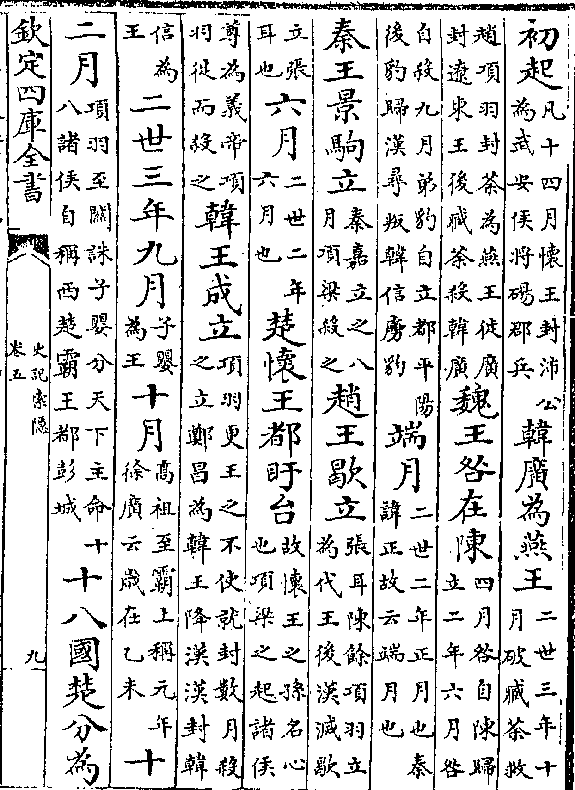 初起凡十四月懷王封沛公為武安侯將碭郡兵韓廣為燕王二世三年十月破臧荼救
趙項羽封荼為燕王徙廣封遼東王後臧荼殺韓廣魏王咎在陳四月咎自陳歸立二年六月咎
自殺九月弟豹自立都平陽後豹歸漢尋叛韓信虜豹端月二世二年正月也秦諱正故云端月也
秦王景駒立秦嘉立之八月項梁殺之趙王歇立張耳陳餘項羽立為代王後漢滅歇
立張耳也六月二世二年六月也楚懷王都盱台故懷王之孫名心也項梁之起諸侯
尊為義帝項羽徙而殺之韓王成立項羽更王之不使就封數月殺之立鄭昌為韓王降漢漢封韓
信為王二世三年九月子嬰為王十月高祖至霸上稱元年徐廣云歲在乙未十
二月項羽至關誅子嬰分天下主命十八諸侯自稱西楚霸王都彭城十八國楚分為
欽定四庫全書
史記索隱
卷五
九